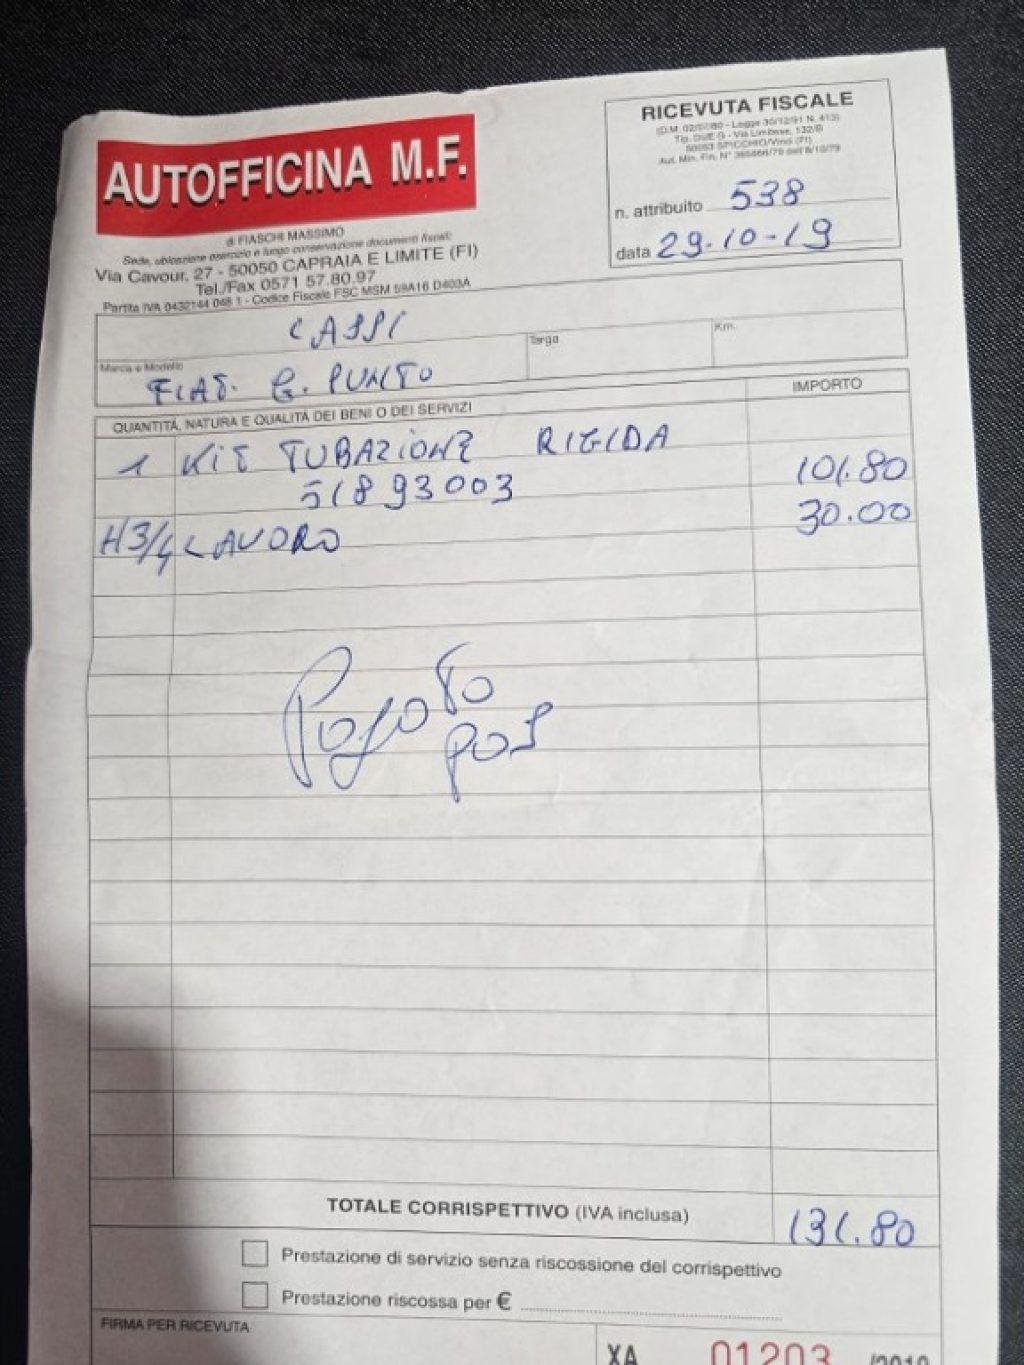 AUTOFFICINA M.F.
di FIASCHI MASSIMO
Sede, ubicazione esercizio e luogo conservazione documenti fiscali:
Via Cavour, 27 - 50050 CAPRAIA E LIMITE (FI)
Tel./Fax 0571 57.80.97
Partita IVA 0432144 048 1 - Codice Fiscale FSC MSM 58A16 D403A
RICEVUTA FISCALE
(D.M. - Legge 30/12/91 N. 413)
Tip. DUE G - Via Limitese, 132/B
50053 SPICCHIO/Vinci (FI)
Aut. Min. Fin. N°
n. attribuito 538
data 29-10-19
CAPPI
Targa
Km.
Marca e Modello
FIAT. G. PUNTO
QUANTITÀ, NATURA E QUALITÀ DEI BENI O DEI SERVIZI
IMPORTO
1 KIT TUBAZIONE RIGIDA
51893003 101.80
H3/4 LAVORO 30.00
Pagato
pos
TOTALE CORRISPETTIVO (IVA inclusa) 131.80
Prestazione di servizio senza riscossione del corrispettivo
Prestazione riscossa per €
FIRMA PER RICEVUTA
XA 01203 /2019